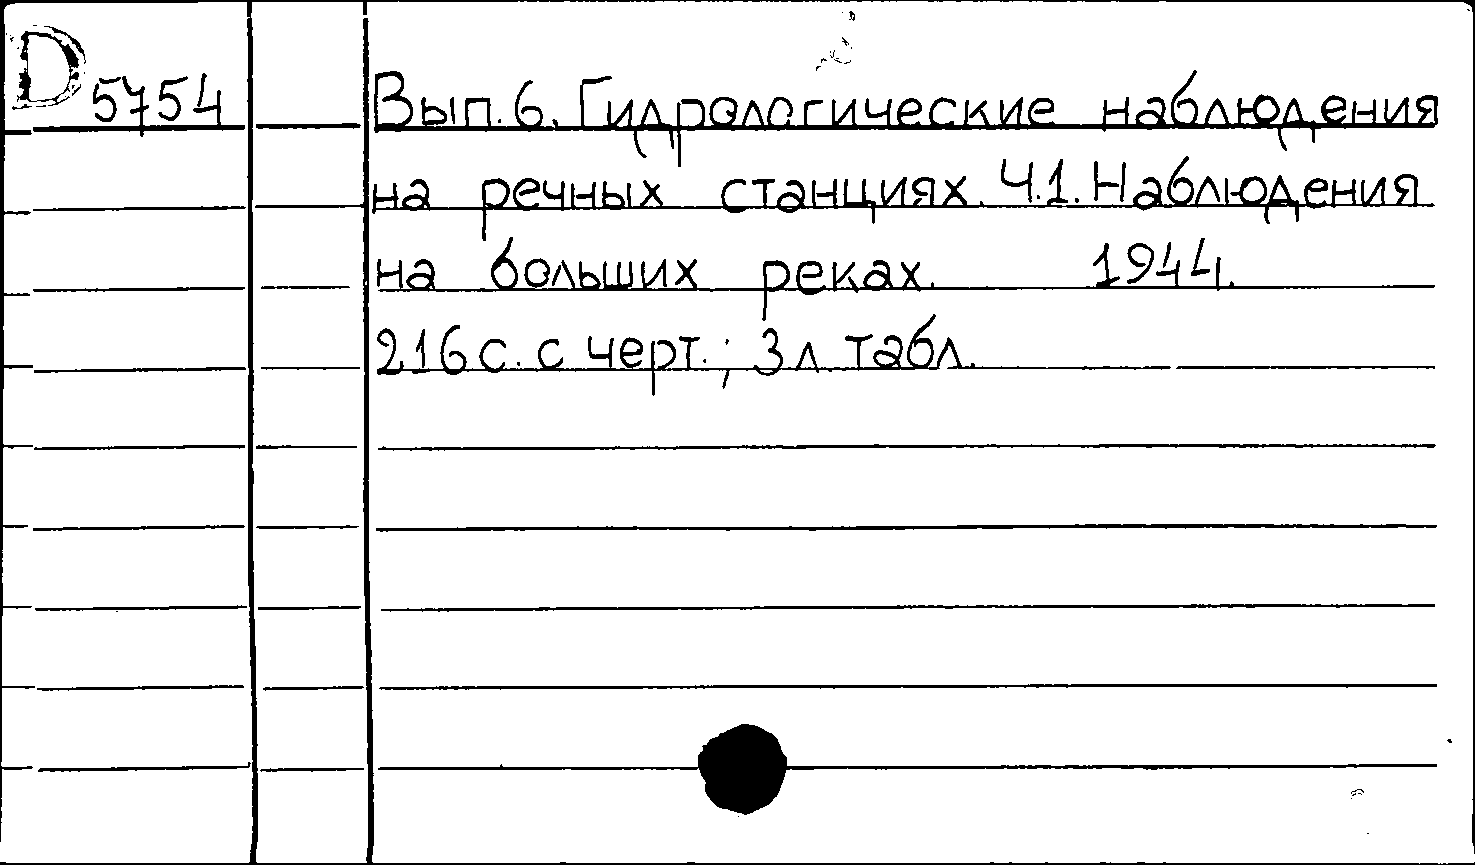 D 5754
Вып. 6. Гидрологические наблюдения
на речных станциях. Ч.1. Наблюдения
на больших реках. 1944.
216 с. с черт.; 3 л. табл.